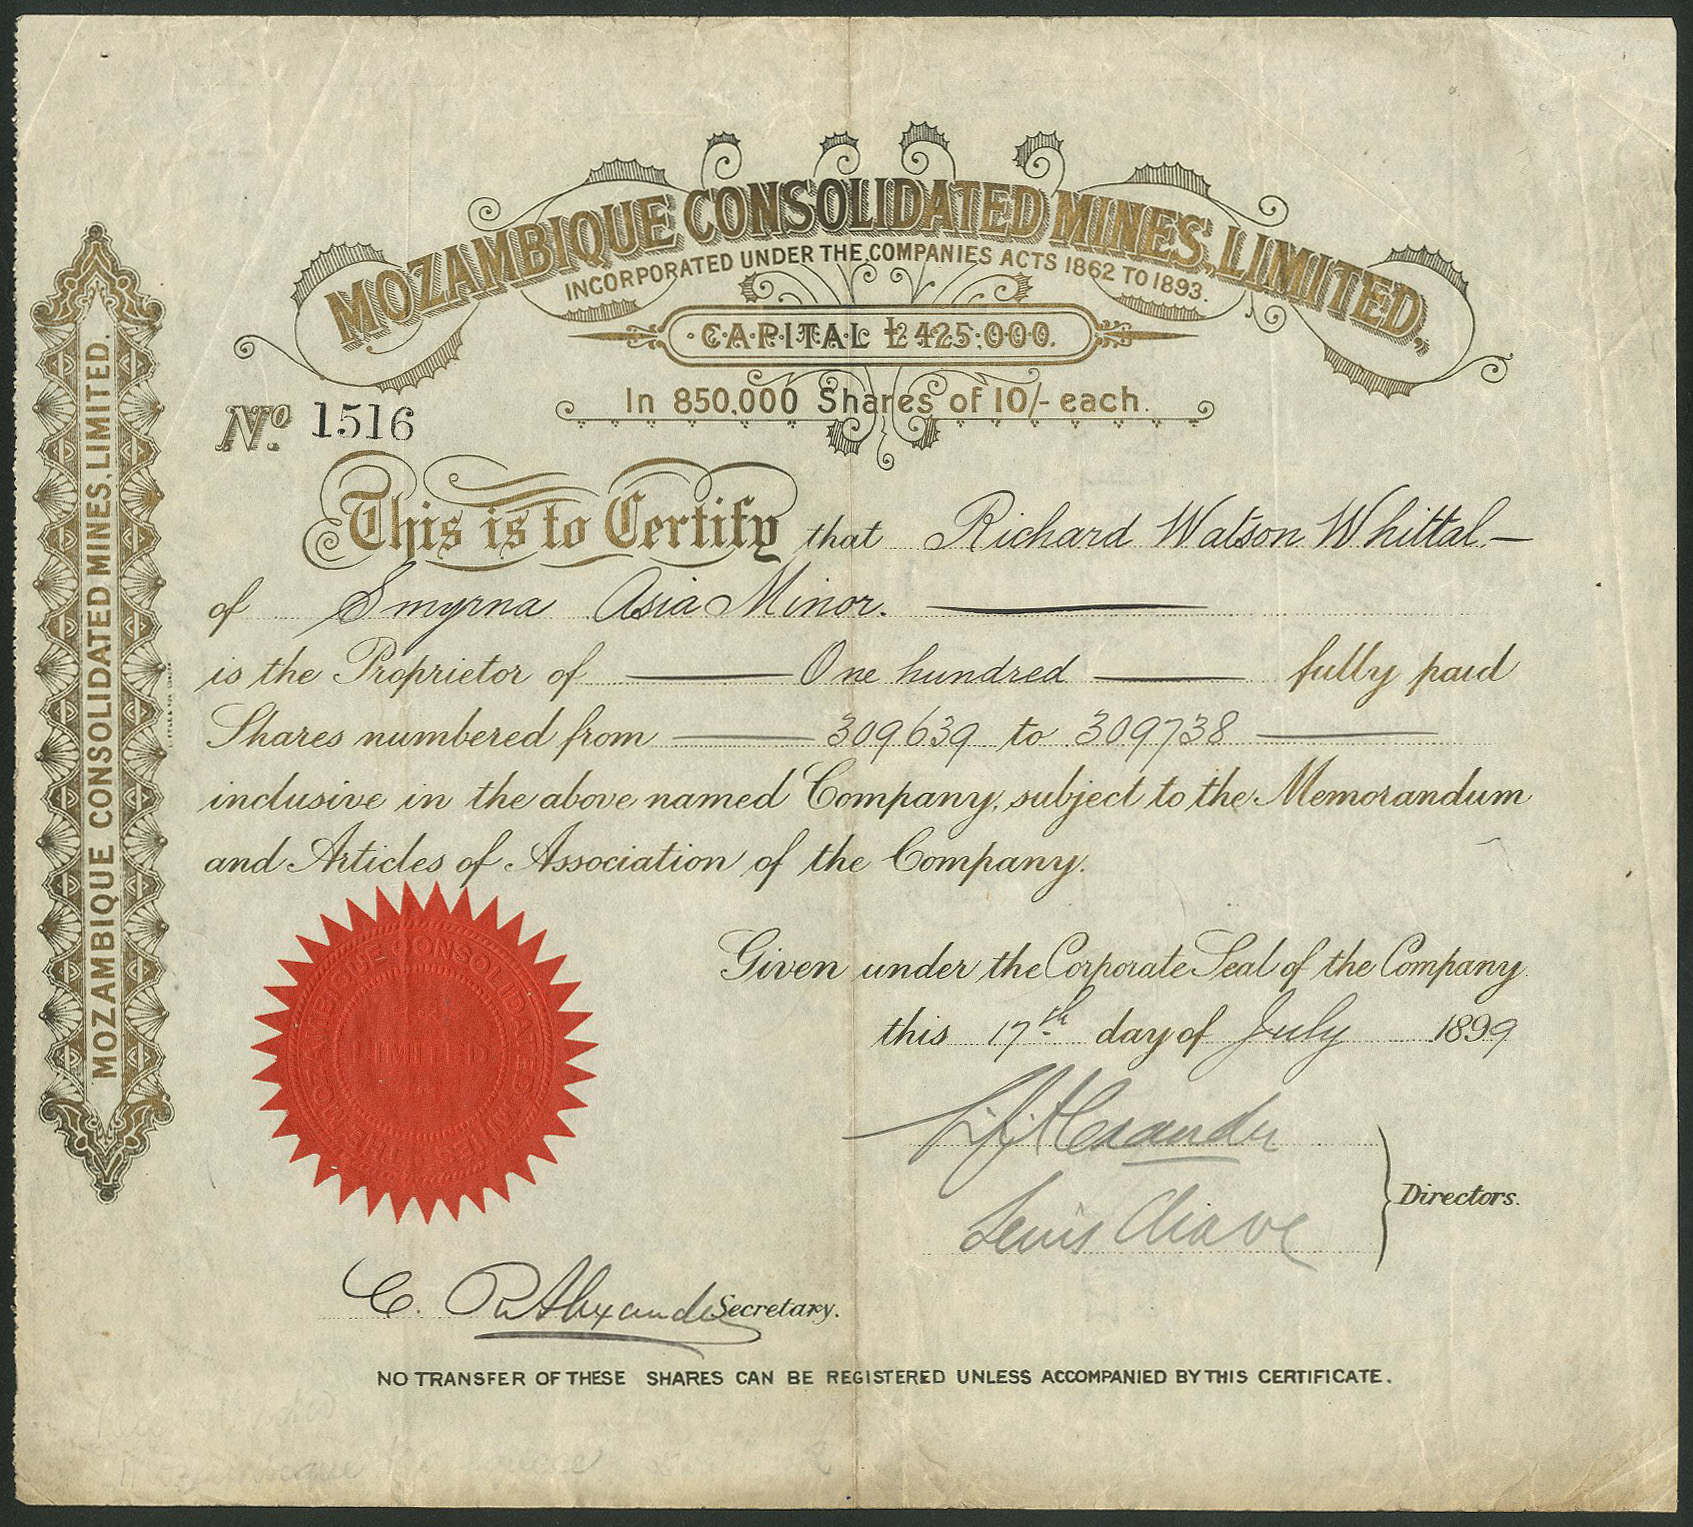 MOZAMBIQUE CONSOLIDATED MINES, LIMITED,
INCORPORATED UNDER THE COMPANIES ACTS 1862 TO 1893.
CAPITAL £425,000.
In 850,000 Shares of 10/- each.
No. 1516
This is to Certify that Richard Watson Whittal
of Smyrna Asia Minor.
is the Proprietor of One hundred fully paid
Shares numbered from 309639 to 309738
inclusive in the above named Company, subject to the Memorandum
and Articles of Association of the Company.
Given under the Corporate Seal of the Company
this 17th day of July 1899
Alexander
Lewis
Directors.
C. Alexander Secretary.
NO TRANSFER OF THESE SHARES CAN BE REGISTERED UNLESS ACCOMPANIED BY THIS CERTIFICATE.
MOZAMBIQUE CONSOLIDATED MINES, LIMITED.
THE MOZAMBIQUE CONSOLIDATED MINES
LIMITED